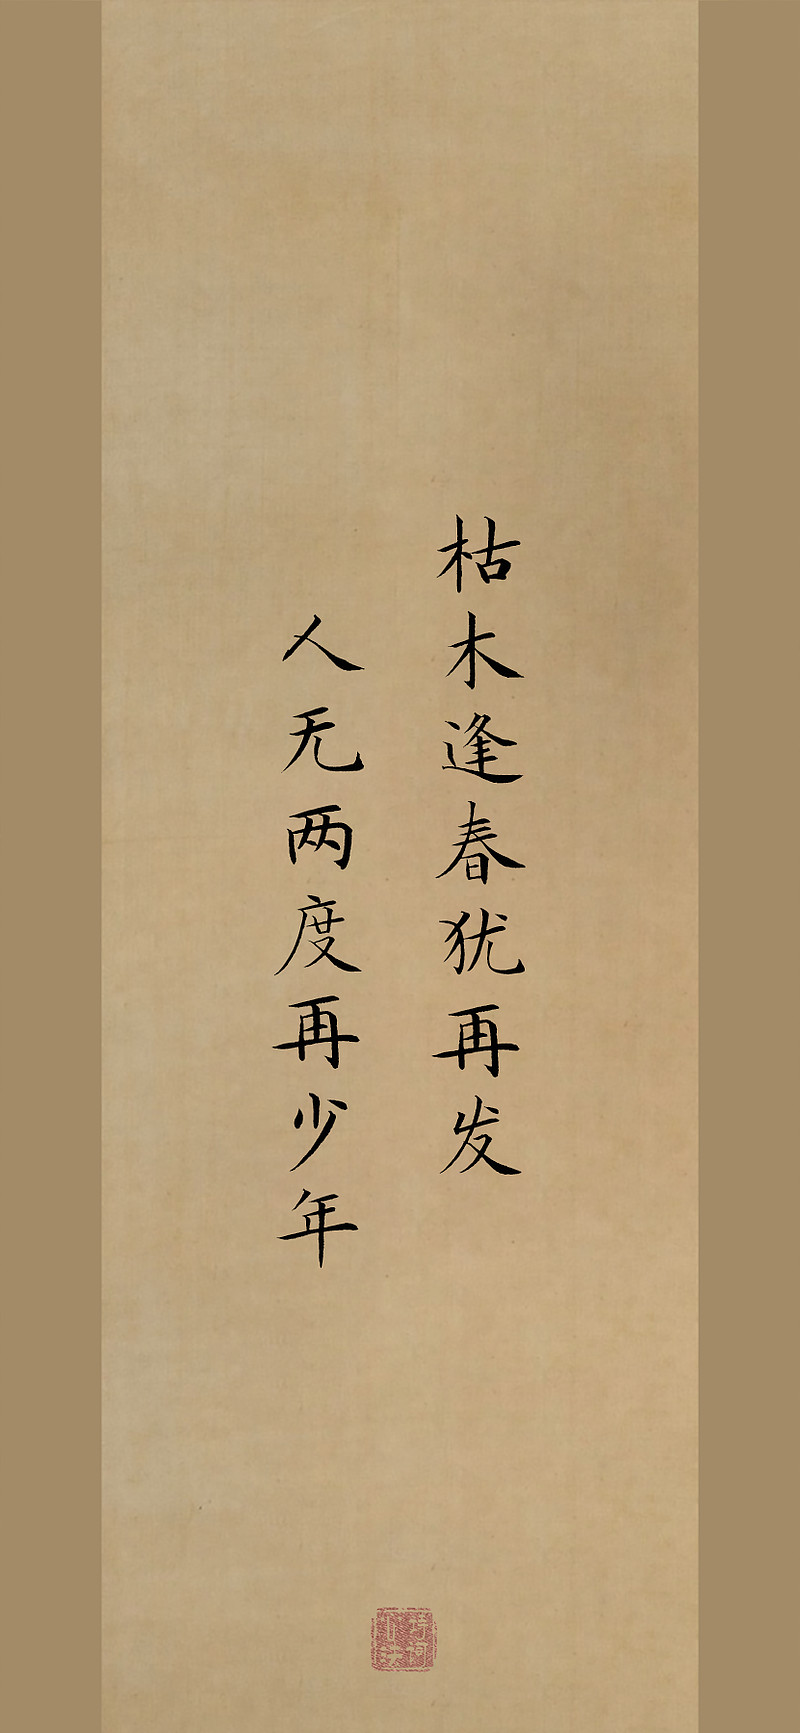 枯木逢春犹再发
人无两度再少年